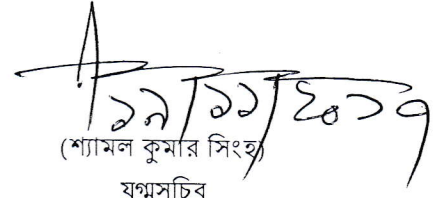 ১৯/১১/২০১৭
(শ্যামল কুমার সিংহ)
যুগ্মসচিব